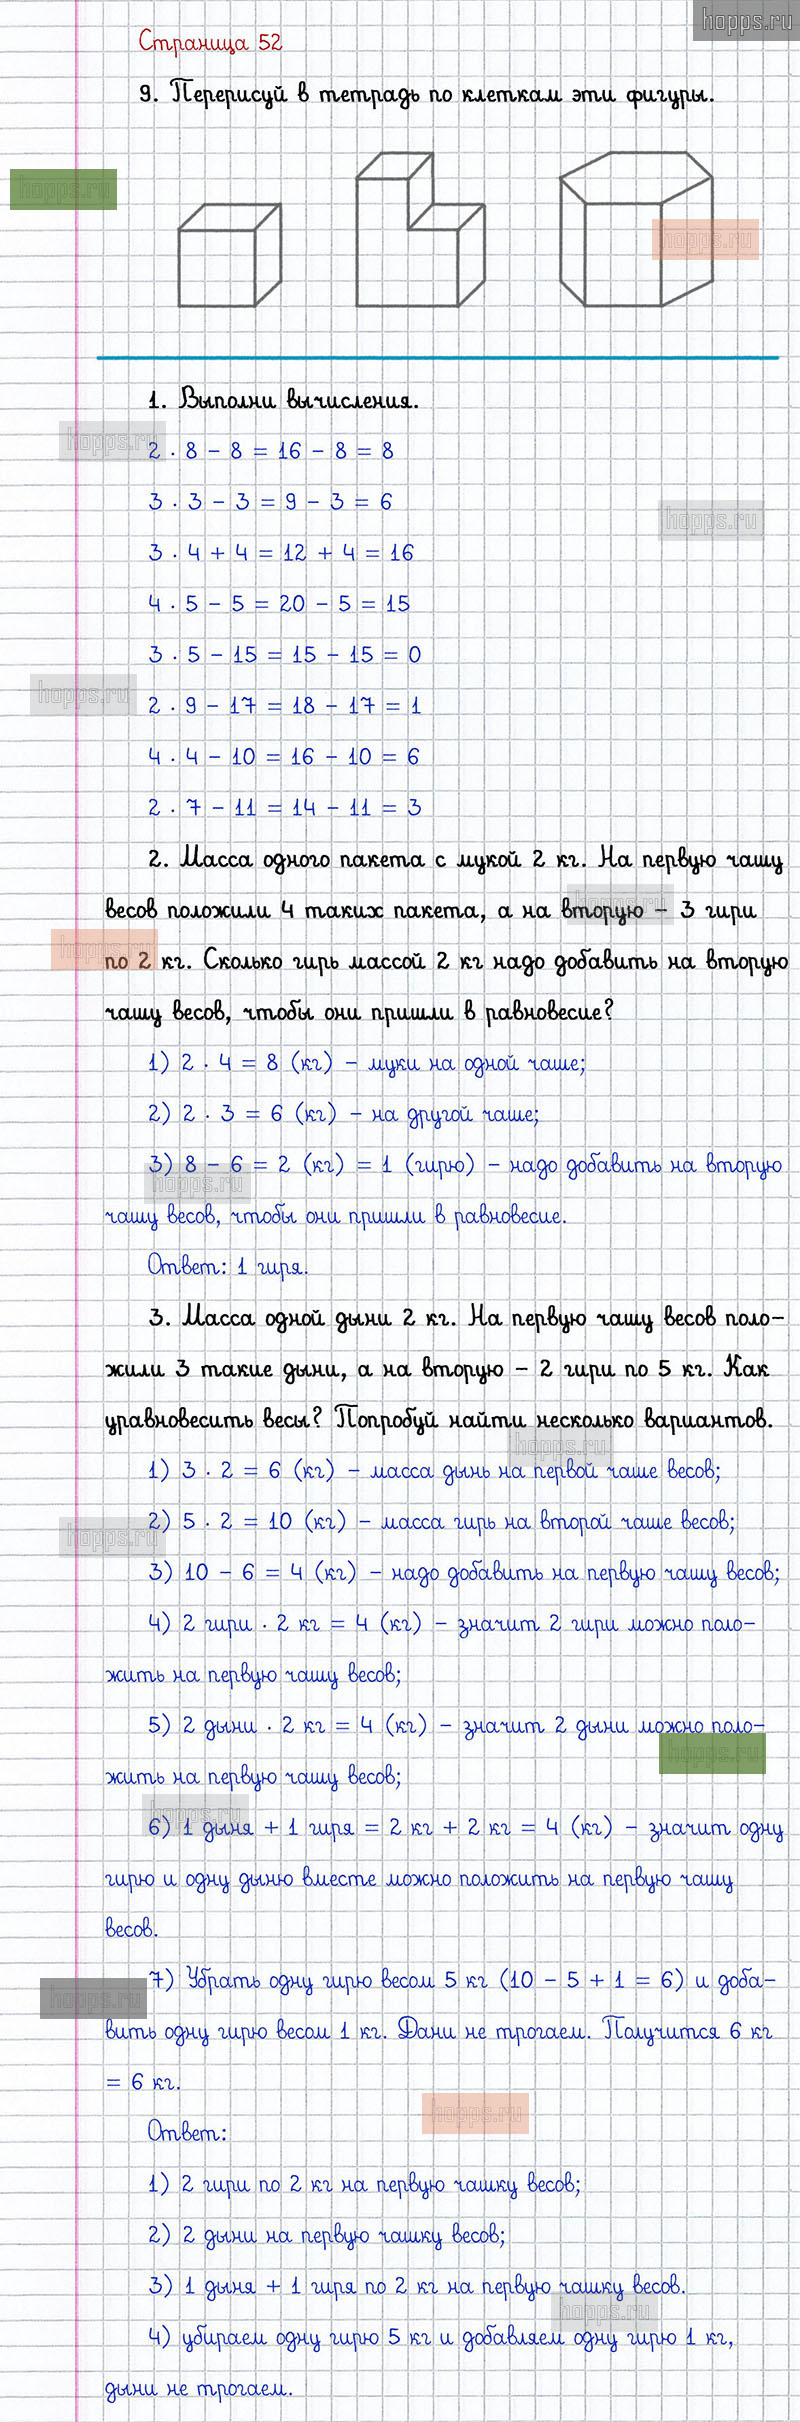 hopps.ru
Страница 52
9. Перерисуй в тетрадь по клеткам эти фигуры.
hopps.ru
hopps.ru
1. Выполни вычисления.
hopps.ru
2 · 8 – 8 = 16 – 8 = 8
3 · 3 – 3 = 9 – 3 = 6
hopps.ru
3 · 4 + 4 = 12 + 4 = 16
4 · 5 – 5 = 20 – 5 = 15
3 · 5 – 15 = 15 – 15 = 0
hopps.ru
2 · 9 – 17 = 18 – 17 = 1
4 · 4 – 10 = 16 – 10 = 6
2 · 7 – 11 = 14 – 11 = 3
2. Масса одного пакета с мукой 2 кг. На первую чашу
hopps.ru
весов положили 4 таких пакета, а на вторую – 3 гири
hopps.ru
по 2 кг. Сколько гирь массой 2 кг надо добавить на вторую
чашу весов, чтобы они пришли в равновесие?
1) 2 · 4 = 8 (кг) – муки на одной чаше;
2) 2 · 3 = 6 (кг) – на другой чаше;
3) 8 – 6 = 2 (кг) = 1 (гирю) – надо добавить на вторую
hopps.ru
чашу весов, чтобы они пришли в равновесие.
Ответ: 1 гиря.
3. Масса одной дыни 2 кг. На первую чашу весов поло-
жили 3 такие дыни, а на вторую – 2 гири по 5 кг. Как
уравновесить весы? Попробуй найти несколько вариантов.
hopps.ru
1) 3 · 2 = 6 (кг) – масса дынь на первой чаше весов;
2) 5 · 2 = 10 (кг) – масса гирь на второй чаше весов;
hopps.ru
3) 10 – 6 = 4 (кг) – надо добавить на первую чашу весов;
4) 2 гири · 2 кг = 4 (кг) – значит 2 гири можно поло-
жить на первую чашу весов;
5) 2 дыни · 2 кг = 4 (кг) – значит 2 дыни можно поло-
hopps.ru
жить на первую чашу весов;
hopps.ru
6) 1 дыня + 1 гиря = 2 кг + 2 кг = 4 (кг) – значит одну
гирю и одну дыню вместе можно положить на первую чашу
весов.
7) Убрать одну гирю весом 5 кг (10 – 5 + 1 = 6) и доба-
hopps.ru
вить одну гирю весом 1 кг. Дани не трогаем. Получится 6 кг
= 6 кг.
hopps.ru
Ответ:
1) 2 гири по 2 кг на первую чашку весов;
2) 2 дыни на первую чашку весов;
3) 1 дыня + 1 гиря по 2 кг на первую чашку весов.
hopps.ru
4) убираем одну гирю 5 кг и добавляем одну гирю 1 кг,
дыни не трогаем.